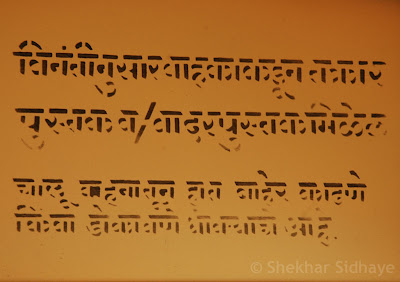 विनंतीनुसार वाहकाकडून तक्रार
पुस्तक व/वॉर्डर पुस्तक मिळेल
चालू वाहनातून हात बाहेर काढणे
किंवा डोकावणे धोक्याचे आहे.
© Shekhar Sidhaye